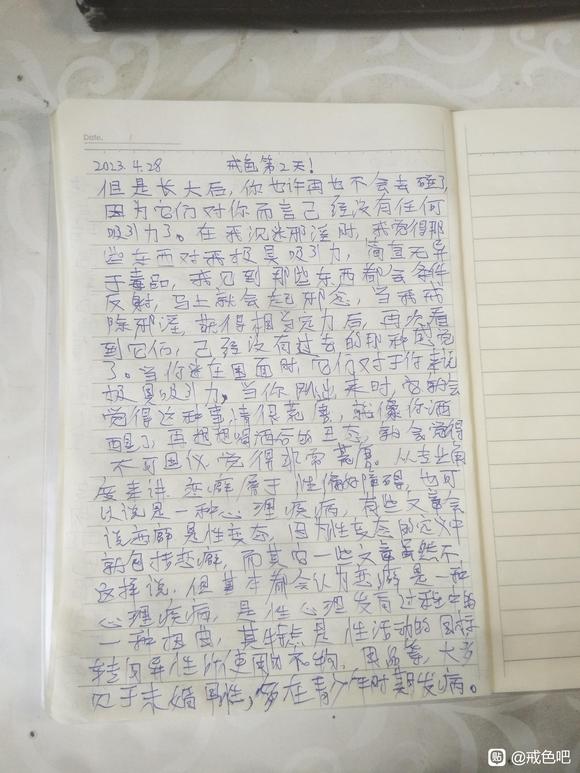 Date.
2023.4.28 戒色第2天!
但是长大后,你也许再也不会去碰了,
因为它们对你而言已经没有任何
吸引力了。在我沉迷邪淫时,我觉得那
些东西对我极具吸引力,简直无异
于毒品,我见到那些东西都会条件
反射,马上就会起邪念,当我戒
除邪淫,获得相当定力后,再次看
到它们,已经没有过去的那种感觉
了。当你迷在里面时,它们对于你来说
极具吸引力,当你跳出来时,你就会
觉得这种事情很荒唐,就像你酒
醒了,再想想喝酒后的丑态,就会觉得
不可思议,觉得非常荒唐。从专业角
度来讲,恋癖属于性偏好障碍,也可
以说是一种心理疾病,有些文章会
说恋癖是性变态,因为性变态的定义中
就包括恋癖,而其它一些文章虽然不
这样说,但基本都会认为恋癖是一种
心理疾病,是性心理发育过程中的
一种扭曲,其特点是性活动的目标
转向异性所使用的衣物、用品等,大多
见于未婚男性,多在青少年时期发病。
贴 @戒色吧